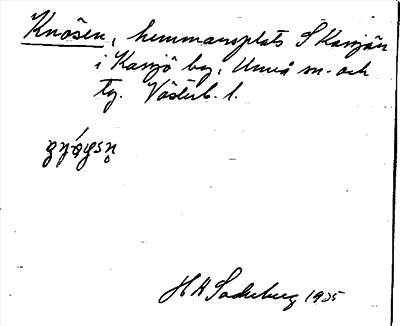 Knösen, hemmansplats S Kasjön
i Kasjö by, Umeå sn. och
tg. Västerb. l.
H A Söderberg 1935